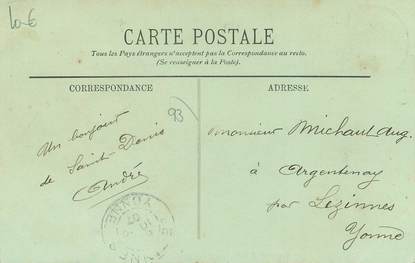 10-€
CARTE POSTALE
Tous les Pays étrangers n'acceptent pas la Correspondance au recto.
(Se renseigner à la Poste).
CORRESPONDANCE
ADRESSE
93
Un bonjour
de Saint-Denis
André
Monsieur Michaut Aug.
à
Argentenay
par Lézinnes
Yonne
YONNE